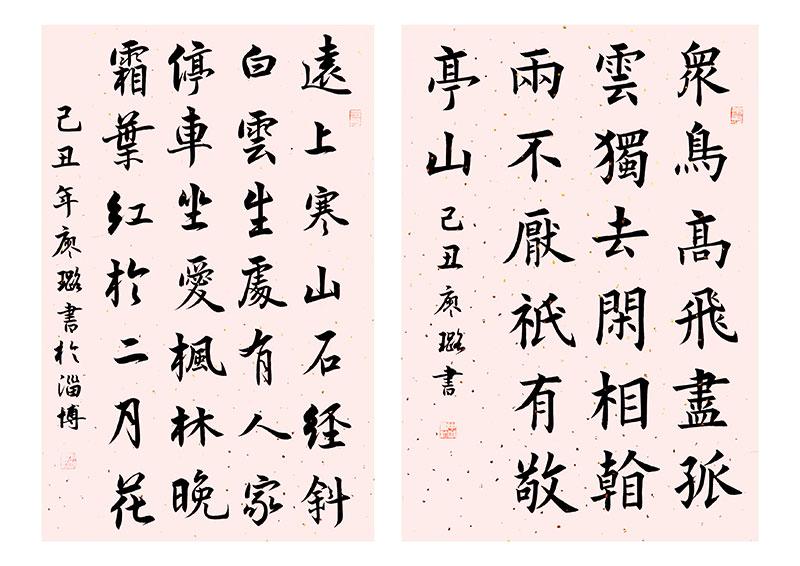 衆鳥髙飛盡孤
雲獨去閑相看
兩不厭祇有敬
亭山
己丑廖璐書
遠上寒山石経斜
白雲生處有人家
停車坐愛楓林晚
霜葉紅於二月花
己丑年廖璐書於淄博